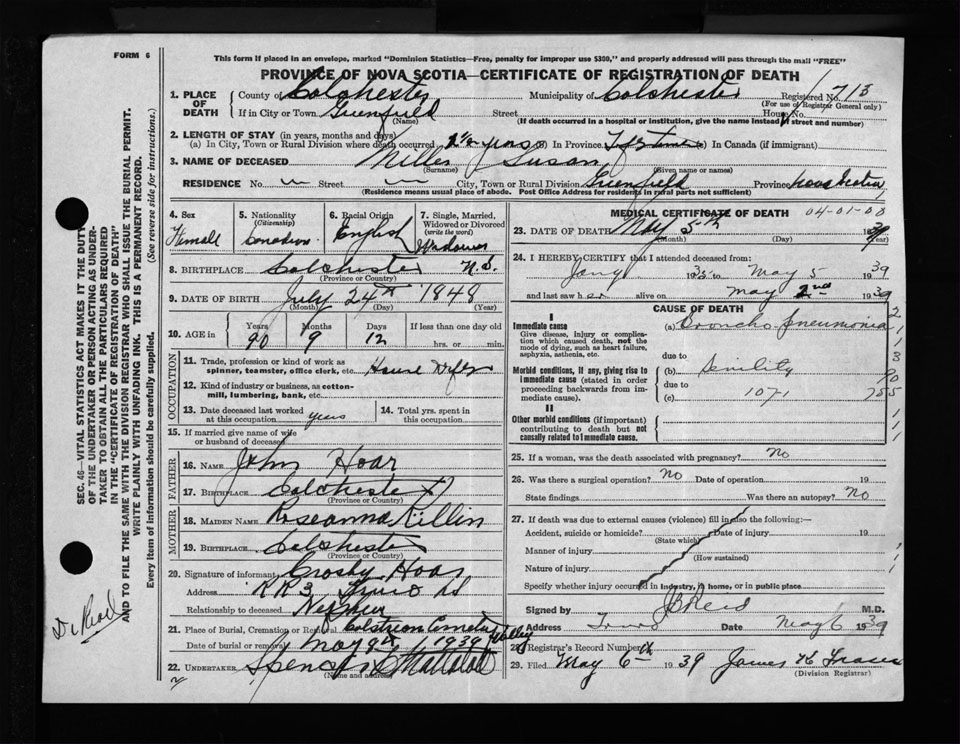 FORM 6
This form if placed in an envelope, marked "Dominion Statistics—Free, penalty for improper use $300," and properly addressed will pass through the mail "FREE"
PROVINCE OF NOVA SCOTIA—CERTIFICATE OF REGISTRATION OF DEATH
1. PLACE OF DEATH
County of Colchester Municipality of Colchester Registered No. 713
(For use of Registrar General only)
If in City or Town Greenfield Street House No.
(Name) (If death occurred in a hospital or institution, give the name instead of street and number)
2. LENGTH OF STAY (in years, months and days)
(a) In City, Town or Rural Division where death occurred years (b) In Province Life time (c) In Canada (if immigrant)
3. NAME OF DECEASED Miller Susan
(Surname) (Given name or names)
RESIDENCE No. Street City, Town or Rural Division Greenfield Province Nova Scotia
(Residence means usual place of abode. Post Office Address for residents in rural parts not sufficient)
4. Sex
Female
5. Nationality
(Citizenship)
Canadian
6. Racial Origin
English
7. Single, Married, Widowed or Divorced
(write the word)
Widow
8. BIRTHPLACE Colchester N.S.
(Province or Country)
9. DATE OF BIRTH July 24th 1848
(Month) (Day) (Year)
10. AGE in
Years Months Days If less than one day old
90 9 12 hrs. or min.
OCCUPATION
11. Trade, profession or kind of work as spinner, teamster, office clerk, etc. House Wife
12. Kind of industry or business, as cotton-mill, lumbering, bank, etc.
13. Date deceased last worked at this occupation years
14. Total yrs. spent in this occupation
15. If married give name of wife or husband of deceased
FATHER
16. NAME John Hoar
17. BIRTHPLACE Colchester
(Province or Country)
MOTHER
18. MAIDEN NAME Roseanna Killin
19. BIRTHPLACE Colchester
(Province or Country)
20. Signature of informant Crosby Hoar
Address RR3 Truro NS
Relationship to deceased Nephew
21. Place of Burial, Cremation or Removal Cemetery Valley
Date of burial or removal May 9th 1939
22. UNDERTAKER Spencer
(Name and address)
MEDICAL CERTIFICATE OF DEATH 04-01-00
23. DATE OF DEATH May 5th 1939
(Month) (Day) (Year)
24. I HEREBY CERTIFY that I attended deceased from:
Jany 1938 to May 5 1939
and last saw her alive on May 2nd 1939
CAUSE OF DEATH
I
Immediate cause
Give disease, injury or complication which caused death, not the mode of dying, such as heart failure, asphyxia, asthenia, etc.
(a) Broncho Pneumonia
due to
Morbid conditions, if any, giving rise to immediate cause (stated in order proceeding backwards from immediate cause).
(b) Senility
due to
(c) 107-1
II
Other morbid conditions (if important) contributing to death but not causally related to immediate cause.
25. If a woman, was the death associated with pregnancy? No
26. Was there a surgical operation? No Date of operation 19
State findings Was there an autopsy? No
27. If death was due to external causes (violence) fill in also the following:—
Accident, suicide or homicide? Date of injury 19
(State which)
Manner of injury
(How sustained)
Nature of injury
Specify whether injury occurred in industry, in home, or in public place
Signed by J B Reid M.D.
Address Truro Date May 6 1939
28. Registrar's Record Number
29. Filed May 6th 1939 James
(Division Registrar)
SEC. 46—VITAL STATISTICS ACT MAKES IT THE DUTY OF THE UNDERTAKER OR PERSON ACTING AS UNDERTAKER TO OBTAIN ALL THE PARTICULARS REQUIRED IN THE "CERTIFICATE OF REGISTRATION OF DEATH" AND TO FILE THE SAME WITH THE DIVISION REGISTRAR WHO SHALL ISSUE THE BURIAL PERMIT.
WRITE PLAINLY WITH UNFADING INK. THIS IS A PERMANENT RECORD.
Every item of information should be carefully supplied. (See reverse side for instructions.)
Dr Reid